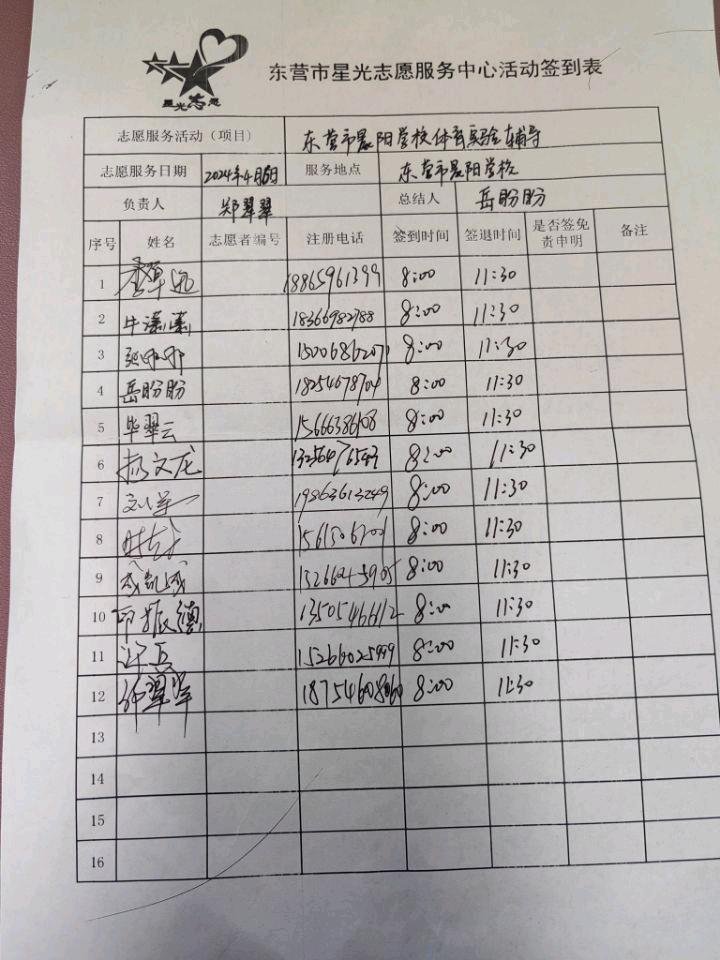 星光志愿
东营市星光志愿服务中心活动签到表
志愿服务活动（项目） 东营市晨阳学校体育实验辅导
志愿服务日期 2024年4月6日 服务地点 东营市晨阳学校
负责人 郑翠翠 总结人 岳盼盼
序号 姓名 志愿者编号 注册电话 签到时间 签退时间 是否签免责申明 备注
1 18865961399 8:00 11:30
2 牛潇潇 18366982788 8:00 11:30
3 8:00 11:30
4 岳盼盼 8:00 11:30
5 毕翠云 8:00 11:30
6 杨文龙 8:00 11:30
7 19863613249 8:00 11:30
8 8:00 11:30
9 8:00 11:30
10 振德 13505466112 8:00 11:30
11 15266025999 8:00 11:30
12 18754608060 8:00 11:30
13
14
15
16